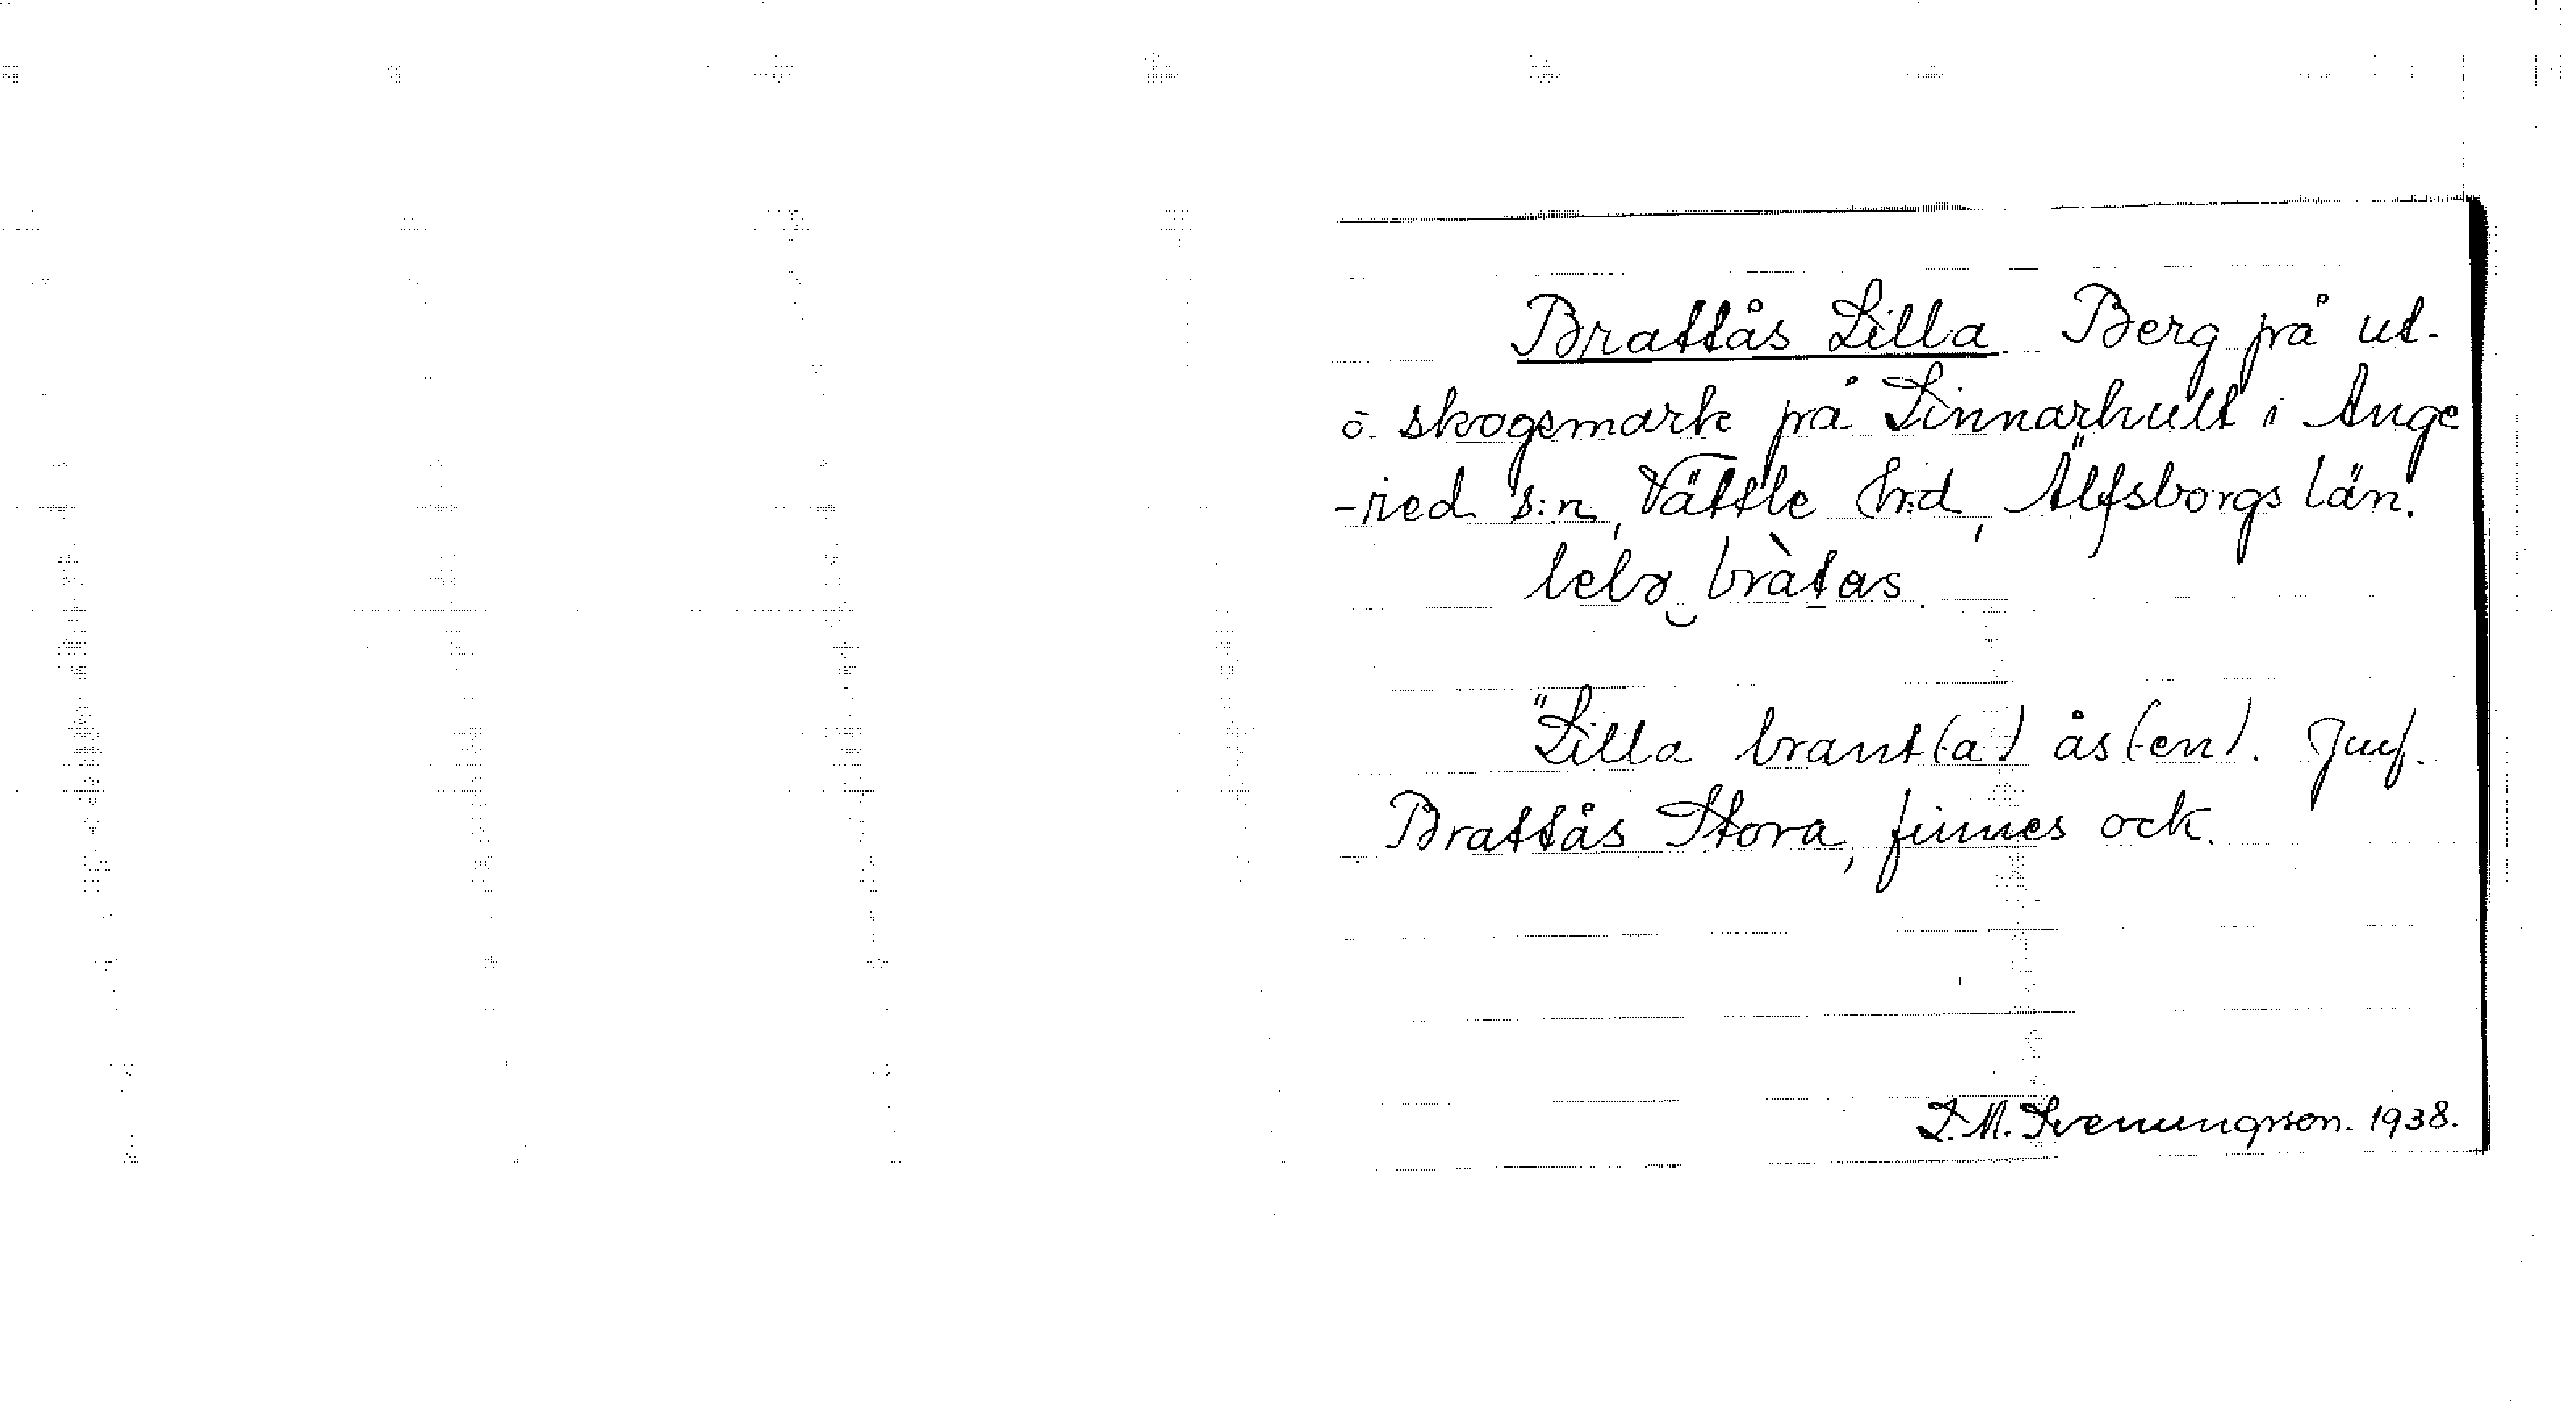 Brattås Lilla Berg på ut-
o. skogsmark på Linnarhult i Ange
-red s:n, Vättle hrd, Älfsborgs län.
"Lilla brant(-a) ås(-en). Jmf.
Brattås Stora, finnes ock.
L.M. Svenungsson. 1938.